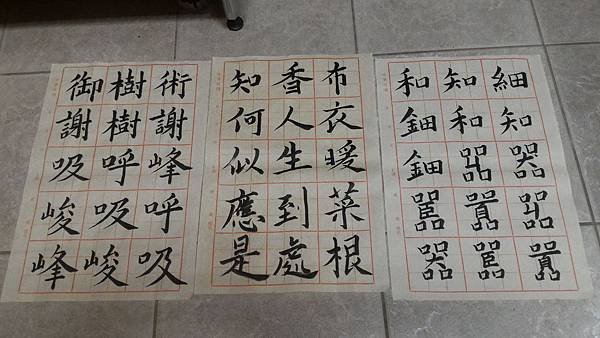 細知器噐囂
知和噐囂嚚
和鈿鈿嚚器
布衣暖菜根
香人生到處
知何似應是
術謝峰呼吸
樹樹呼吸峻
御謝吸峻峰